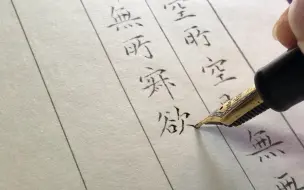 空所空無
無所寂欲